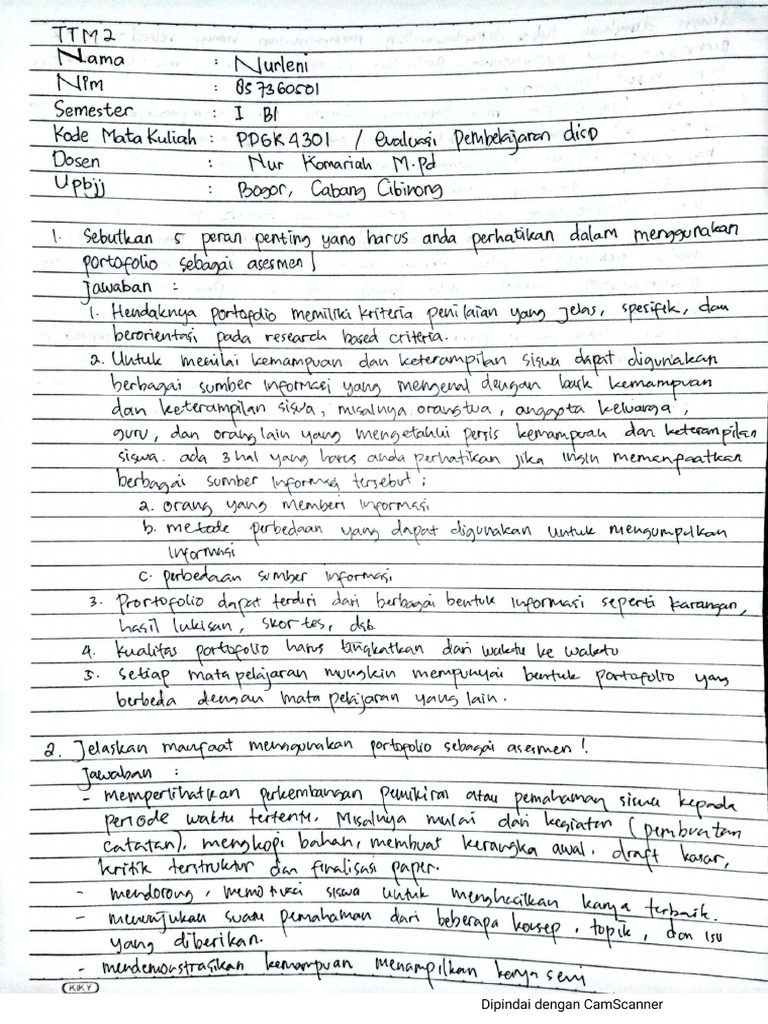 TTM 2
Nama : Nurleni
Nim : 857360501
Semester : I BI
Kode Mata Kuliah : PDGK 4301 / evaluasi Pembelajaran di SD
Dosen : Nur Komariah M.Pd
Upbjj : Bogor, Cabang Cibinong
1. Sebutkan 5 peran penting yang harus anda perhatikan dalam menggunakan
portofolio sebagai asesmen!
Jawaban :
1. Hendaknya portofolio memiliki kriteria penilaian yang jelas, spesifik, dan
berorientasi pada research based criteria.
2. Untuk menilai kemampuan dan keterampilan siswa dapat digunakan
berbagai sumber informasi yang mengenal dengan baik kemampuan
dan keterampilan siswa, misalnya orangtua, anggota keluarga,
guru, dan orang lain yang mengetahui persis kemampuan dan keterampilan
siswa. ada 3 hal yang harus anda perhatikan jika ingin memanfaatkan
berbagai sumber informasi tersebut;
a. orang yang memberi informasi
b. metode perbedaan yang dapat digunakan untuk mengumpulkan
informasi
c. perbedaan sumber informasi
3. Prortofolio dapat terdiri dari berbagai bentuk informasi seperti karangan,
hasil lukisan, skor tes, dsb.
4. Kualitas portofolio harus tingkatkan dari waktu ke waktu
5. Setiap mata pelajaran mungkin mempunyai bentuk portofolio yang
berbeda dengan mata pelajaran yang lain.
2. Jelaskan manfaat menggunakan portofolio sebagai asesmen!
Jawaban :
- memperlihatkan perkembangan pemikiran atau pemahaman siswa kepada
periode waktu tertentu. Misalnya mulai dari kegiatan (pembuatan
catatan), mengkopi bahan, membuat kerangka awal, draft kasar,
kritik terstruktur dan finalisasi paper.
- mendorong, memotivasi siswa untuk menghasilkan karya terbaik.
- menunjukan suatu pemahaman dari beberapa konsep, topik, dan isu
yang diberikan.
- mendemonstrasikan kemampuan menampilkan karya seni
KIKY
Dipindai dengan CamScanner